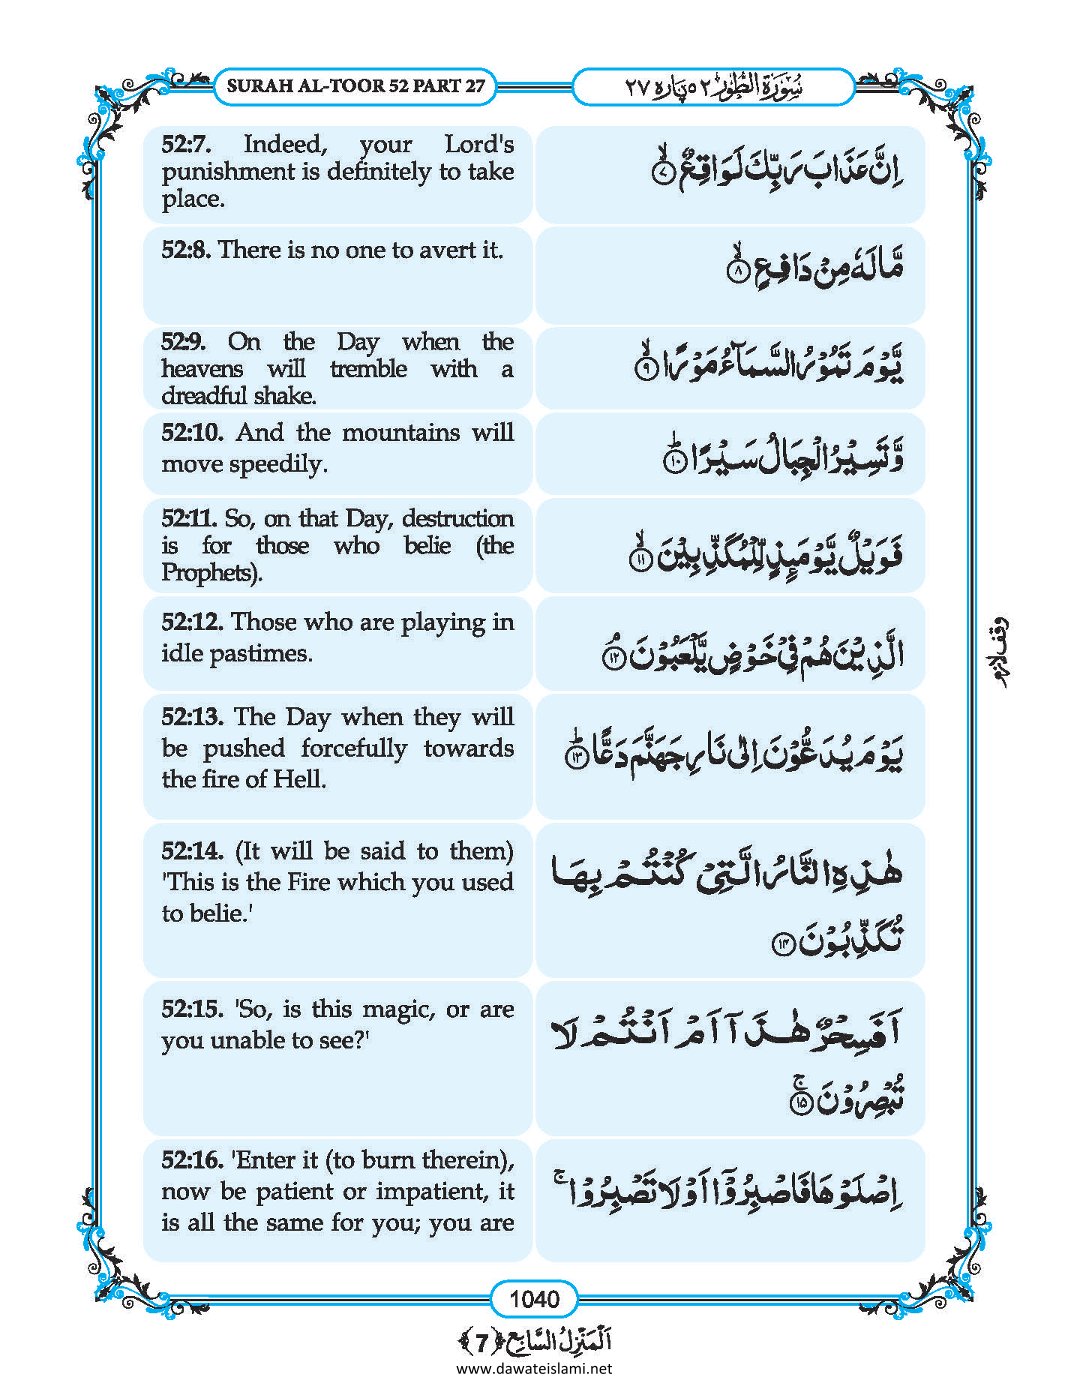 SURAH AL-TOOR 52 PART 27
سُوْرَةُ الطُّوْر ٥٢ پاره ٢٧
52:7. Indeed, your Lord's
punishment is definitely to take
place.
اِنَّ عَذَابَ رَبِّكَ لَوَاقِعٌ ۙ﴿٧﴾
52:8. There is no one to avert it.
مَّا لَهٗ مِنْ دَافِعٍ ۙ﴿٨﴾
52:9. On the Day when the
heavens will tremble with a
dreadful shake.
يَّوْمَ تَمُوْرُ السَّمَآءُ مَوْرًا ۙ﴿٩﴾
52:10. And the mountains will
move speedily.
وَّتَسِيْرُ الْجِبَالُ سَيْرًا ؕ﴿١٠﴾
52:11. So, on that Day, destruction
is for those who belie (the
Prophets).
فَوَيْلٌ يَّوْمَئِذٍ لِّلْمُكَذِّبِيْنَ ۙ﴿١١﴾
52:12. Those who are playing in
idle pastimes.
الَّذِيْنَ هُمْ فِيْ خَوْضٍ يَّلْعَبُوْنَ ۘ﴿١٢﴾
وقف لازم
52:13. The Day when they will
be pushed forcefully towards
the fire of Hell.
يَوْمَ يُدَعُّوْنَ اِلٰى نَارِ جَهَنَّمَ دَعًّا ؕ﴿١٣﴾
52:14. (It will be said to them)
'This is the Fire which you used
to belie.'
هٰذِهِ النَّارُ الَّتِيْ كُنْتُمْ بِهَا
تُكَذِّبُوْنَ ﴿١٤﴾
52:15. 'So, is this magic, or are
you unable to see?'
اَفَسِحْرٌ هٰذَاۤ اَمْ اَنْتُمْ لَا
تُبْصِرُوْنَ ۚ﴿١٥﴾
52:16. 'Enter it (to burn therein),
now be patient or impatient, it
is all the same for you; you are
اِصْلَوْهَا فَاصْبِرُوْۤا اَوْ لَا تَصْبِرُوْا ۚ
1040
اَلْمَنْزِلُ السَّابِع ﴿7﴾
www.dawateislami.net